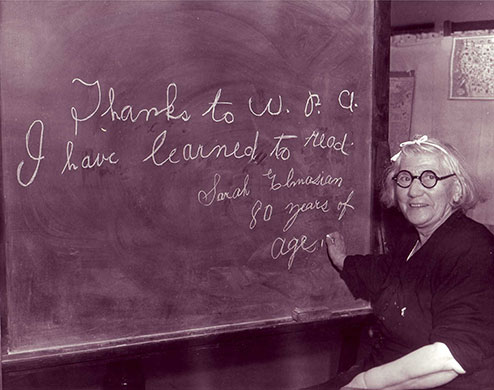 Thanks to W. P. A.
I have learned to read.
Sarah Elmasian
80 years of
age.